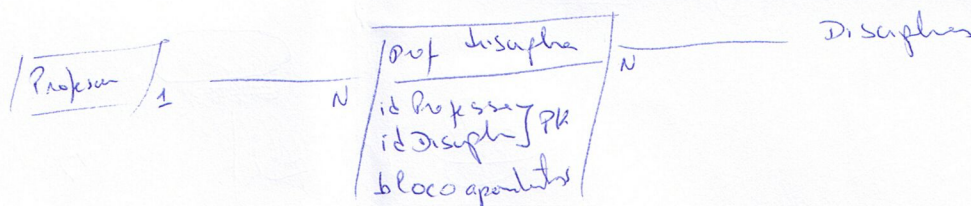 Professor
1
N
Prof Disciplina
idProfessor
idDisciplina
PK
bloco apontamentos
N
Disciplinas